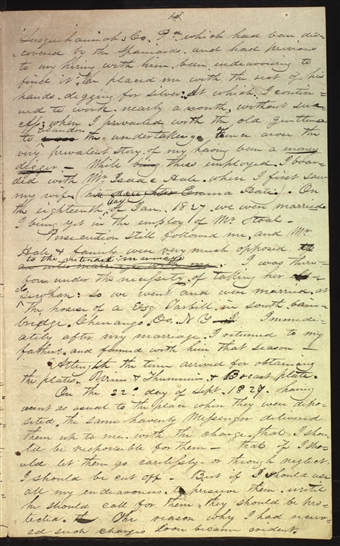 Susquehannah Co. Pa which had been dis-
covered by the Spaniards, and had previous
to my hiring with him been endeavouring to
find it; he placed me with the rest of his
hands digging for silver, at which I contin-
ued to work nearly a month, without suc-
cess; when I prevailed with the old gentleman
abandon
to the undertaking. Hence arose the
very prevalent story of my having been a money
digger. While thus employed I boar-
ded with Mr. Isaac Hale. when I first saw
my wife, Emma Hale). On
the eighteenth of Jan. 1827 we were married
I being yet in the employ of Mr. Stoal.
Persecution still followed me, and Mr.
Hale & family ever very much opposed
to the intended marriage
I was there-
fore under the necessity of taking her
so we went and were married, at
the house of a Esq Tarbill, in south bain-
bridge. Chenango. Co. N.Y. Immedi-
ately after my marriage, I returned to my
fathers, and farmed with him that season —
At length the time arrived for obtaining
the plates. Urim & Thummim & Breast plate.
On the 22d day of Sept. 1827. having
went as usual to the place where they were depo-
sited. the same heavenly Messenger delivered
them up to me, with the charge, that I shou-
ld be responsible for them — that if I sho-
uld let them go carelessly or through neglect,
I should be cut off — But if I should use
all my endeavours to preserve them, until
he should call for them, they should be pro-
tected. The reason why I had receiv-
ed such charges soon became evident.